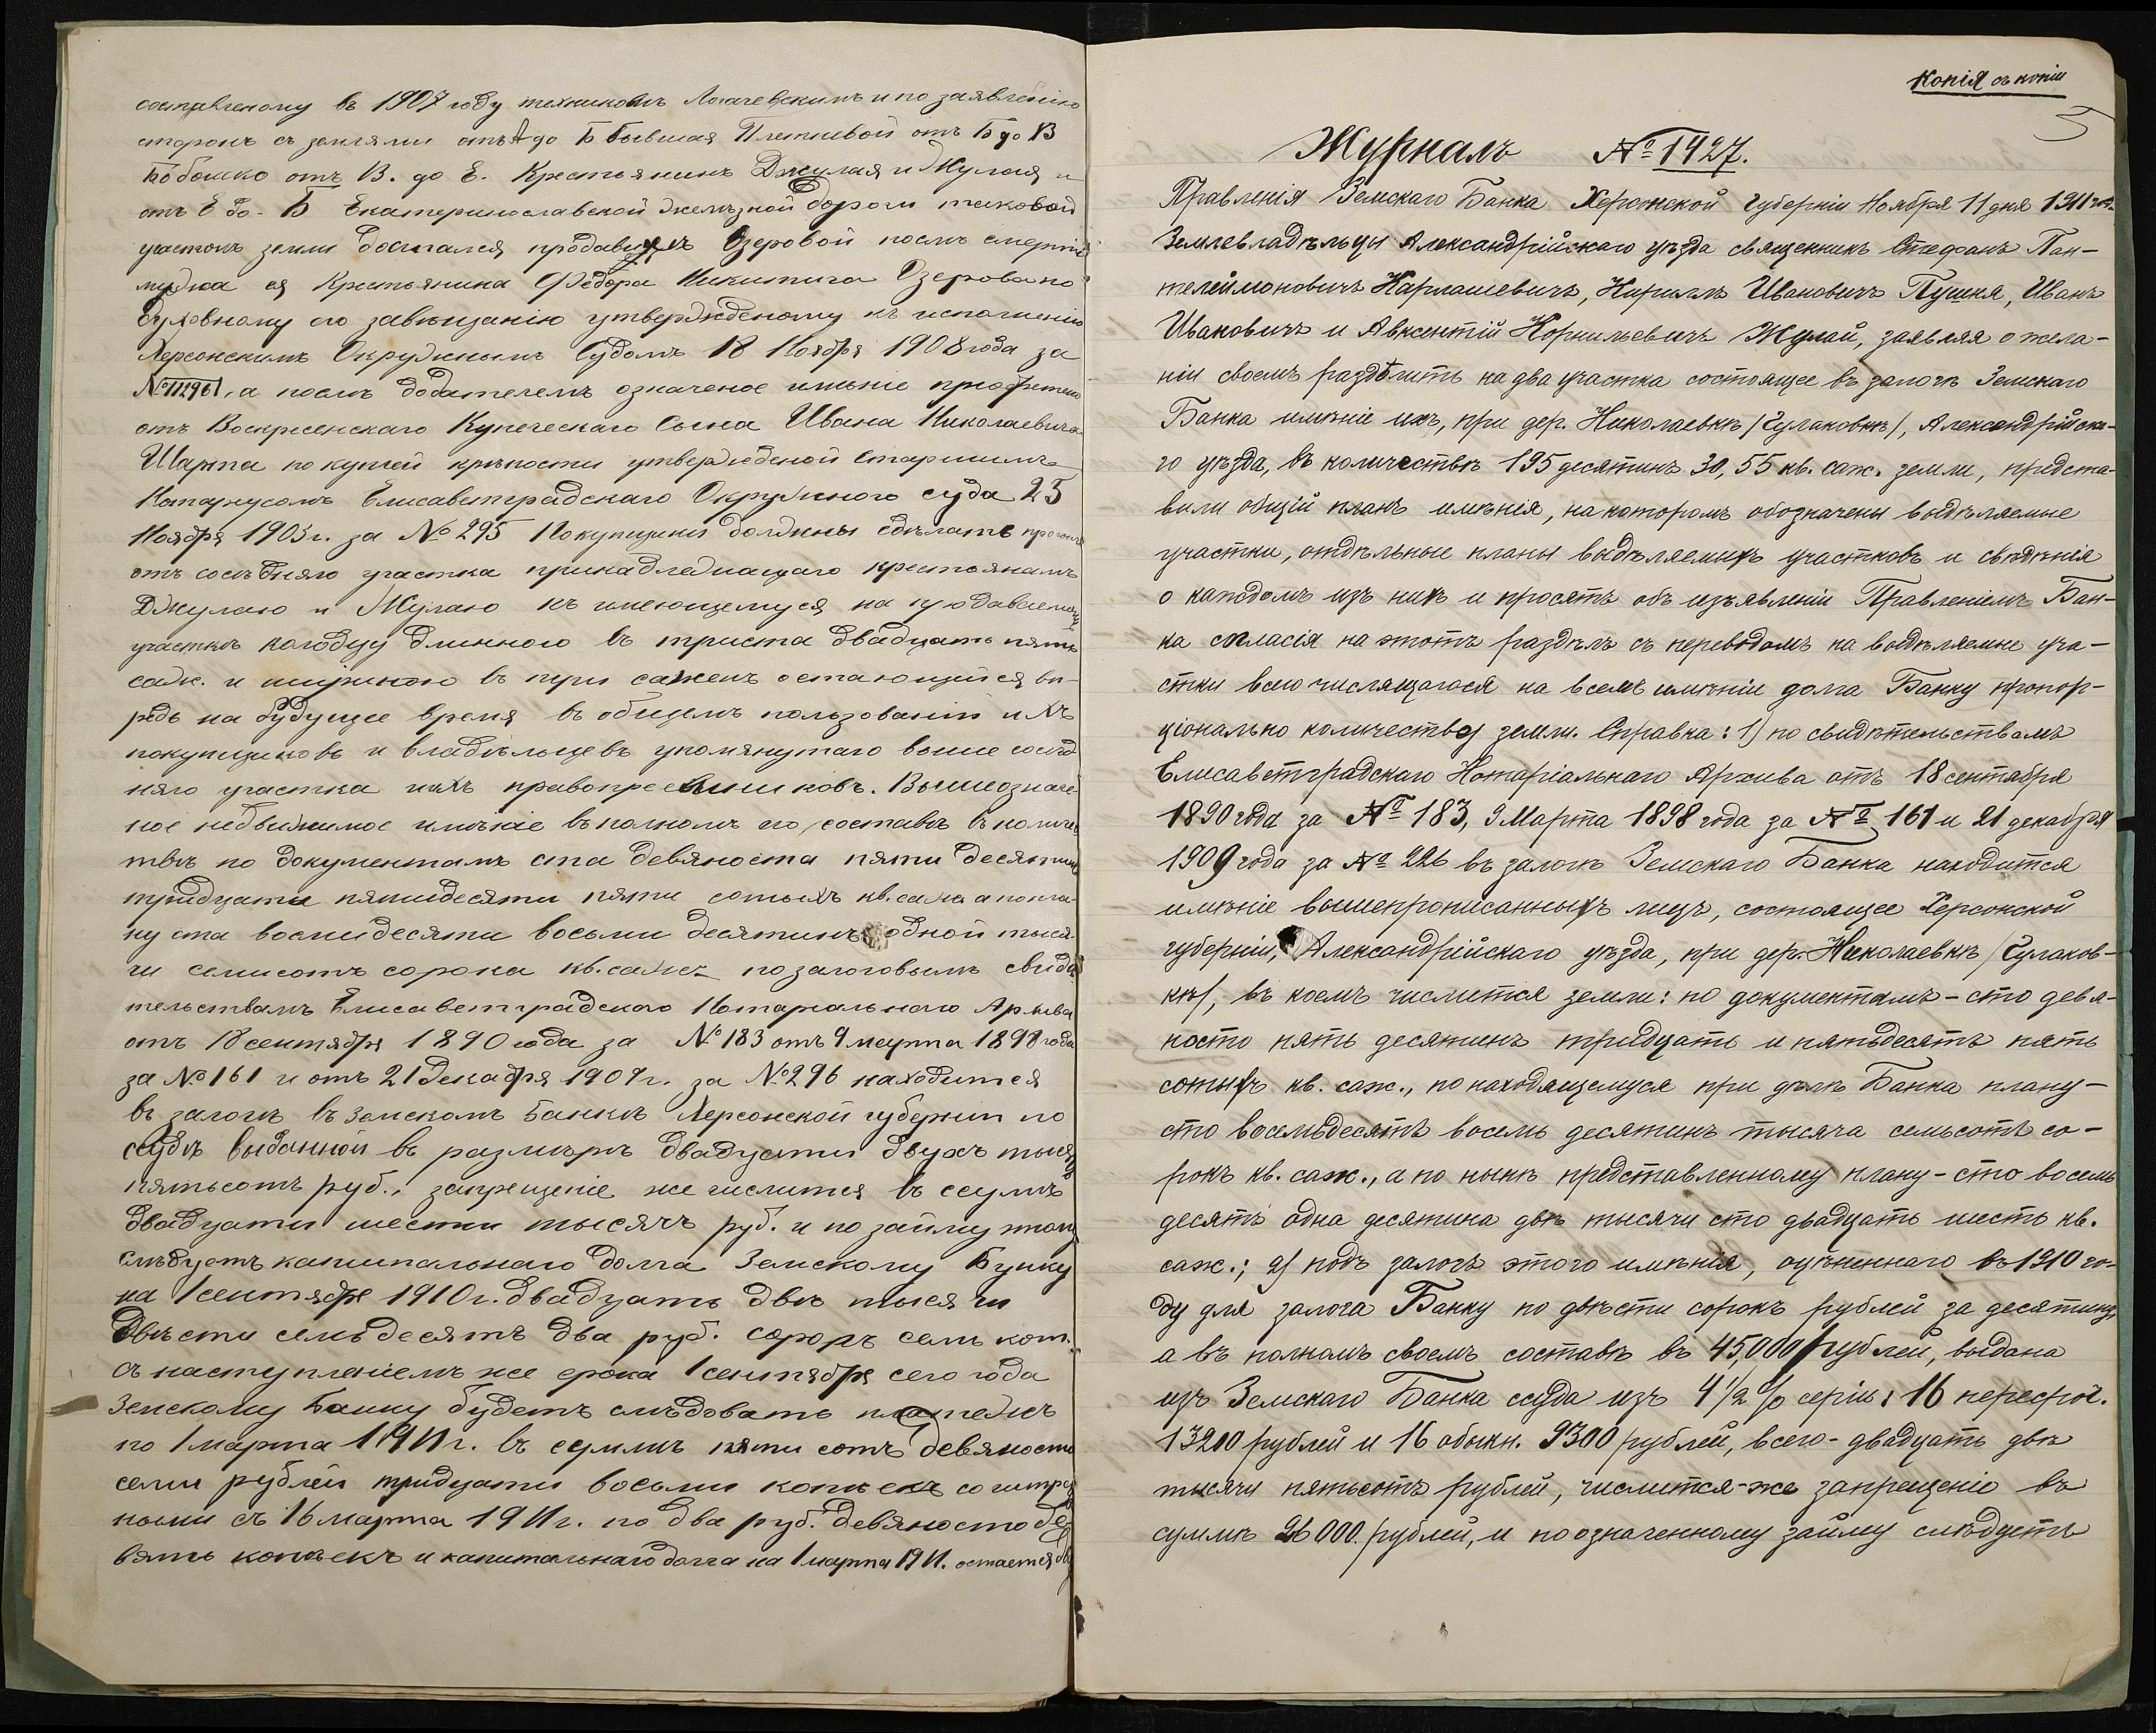 составленому въ 1907 году техникомъ Логачевскимъ и по заявленію
сторонъ съ землями отъ А до Б бывшая Плетневой отъ Б до В
Бобошко отъ В. до Е. Крестьянинъ Джулая и Жулая и
отъ Е до - Б Екатеринославской Желѣзной дороги таковой
участокъ земли достался продавицѣ Озеровой послѣ смерти
мужа ея Крестьянина Федора Никитича Озерова по
духовному его завѣщанію утвержденому къ исполненію
Херсонскимъ Окружнымъ Судомъ 18 Ноября 1908 года за
№ 11296, а послѣ додателемъ означеное имѣніе пріобретено
отъ Воскресенскаго Купеческаго Сына Ивана Николаевича
Шарпа по купчей крѣпости утвержденой Старшимъ
Нотаріусомъ Елисаветградскаго Окружного суда 25
Ноября 1903 г. за № 295 Покупщики должны сдѣлать прогонъ
отъ сосѣдняго участка принадлежащаго крестьянамъ
Джулаю и Жулаю къ имеющемуся на продаваемомъ
участкѣ колодцу длинного въ триста двадцать пять
саж. и шириною въ три сажень остающийся вп-
редь на будущее время въ общемъ пользованіи ихъ
покупщиковъ и владѣльцевъ упомянутаго выше сосѣд
няго участка ихъ правопреемниковъ. Вышеозначе
ное недвижимое имѣніе въ полномъ его составѣ въ количес
твѣ по документамъ ста девяноста пяти десятинъ
тридцати пятидесяти пяти сотыхъ кв. саж. а по пла-
ну ста восмидесяти восьми десятинъ одной тыся-
чи семисотъ сорока кв. саже по залоговымъ свидѣ
тельствамъ Елисаветградскаго Нотаріальнаго Архива
отъ 18 сентября 1890 года за № 183 отъ 9 марта 1898 года
за № 161 и отъ 21 декабря 1909 г. за № 296 находится
въ залогѣ въ Земскомъ Банкѣ Херсонской губерніи по
ссудѣ выданной въ размѣрѣ двадцати двухъ тысячъ
пятьсотъ руб., запрещеніе же числится въ ссумѣ
двадцати шести тысячъ руб. и по займу этому
слѣдуетъ капитальнаго долга Земскому Банку
на 1 сентября 1910 г. двадцать двѣ тысячи
двѣсти семьдесятъ два руб. сорокъ семь коп.
съ наступленіемъ же срока 1 сентября сего года
Земскому Банку будетъ слѣдовать платежъ
по 1 марта 1911 г. въ суммѣ пяти сотъ девяносто
семи рублей тридцати восьми копѣекъ со штраф
ными съ 16 марта 1911 г. по два руб. девяносто де
вять копѣекъ и капитальнаго долга на 1 марта 1911. остается
Копія съ копіи
5
Журналъ № 1927.
Правленія Земскаго Банка Херсонской губерніи Ноября 11 дня 1911 го-
Землевладѣльцы Александрійскаго уѣзда священникъ Стефанъ Пан-
телеймоновичъ Карпашевичъ, Кириллъ Ивановичъ Пушкя, Иванъ
Ивановичъ и Авксентій Корнильевичъ Жулай, заявляя о жела-
ніи своемъ раздѣлить на два участка состоящее въ залогѣ Земскаго
Банка имѣніе ихъ, при дер. Николаевкѣ /Гулаковкѣ/, Александрійска-
го уѣзда, въ количествѣ 195 десятинъ 30,55 кв. саж. земли, предста-
вили общій планъ имѣнія, на которомъ обозначены выдѣляемые
участки, отдѣльные планы выдѣляемыхъ участковъ и свѣдѣнія
о каждомъ изъ нихъ и просятъ объ изъявленіи Правленіемъ Бан-
ка согласія на этотъ раздѣлъ съ переводомъ на выдѣляемые уча-
стки всего числящагося на всемъ имѣніи долга Банку пропор-
ціонально количеству земли. Справка: 1) по свидѣтельствамъ
Елисаветградскаго Нотаріальнаго Архива отъ 18 сентября
1890 года за № 183, 9 Марта 1898 года за № 161 и 21 декабря
1909 года за № 226 въ залогѣ Земскаго Банка находится
имѣніе вышепрописанныхъ лицъ, состоящее Херсонской
губерніи, Александрійскаго уѣзда, при дер. Николаевкѣ /Гулаков-
кѣ/, въ коемъ числится земли: по документамъ - сто девя-
носто пять десятинъ тридцать и пятьдесятъ пять
сотыхъ кв. саж., по находящемуся при дѣлѣ Банка плану -
сто восемьдесятъ восемь десятинъ тысяча семьсотъ со-
рокъ кв. саж., а по нынѣ представленному плану - сто восемь
десятъ одна десятина двѣ тысячи сто двадцать шесть кв.
саж.; 2) подъ залогъ этого имѣнія, оцѣненнаго въ 1910 го-
ду для залога Банку по двѣсти сорокъ рублей за десятину,
а въ полномъ своемъ составѣ въ 45,000 рублей, выдана
изъ Земскаго Банка ссуда изъ 4 1/2 % серіи: 16 пересроч.
13200 рублей и 16 обыкн. 9300 рублей, всего - двадцать двѣ
тысячи пятьсотъ рублей, числится-же запрещеніе въ
суммѣ 26000 рублей, и по означенному займу слѣдуетъ